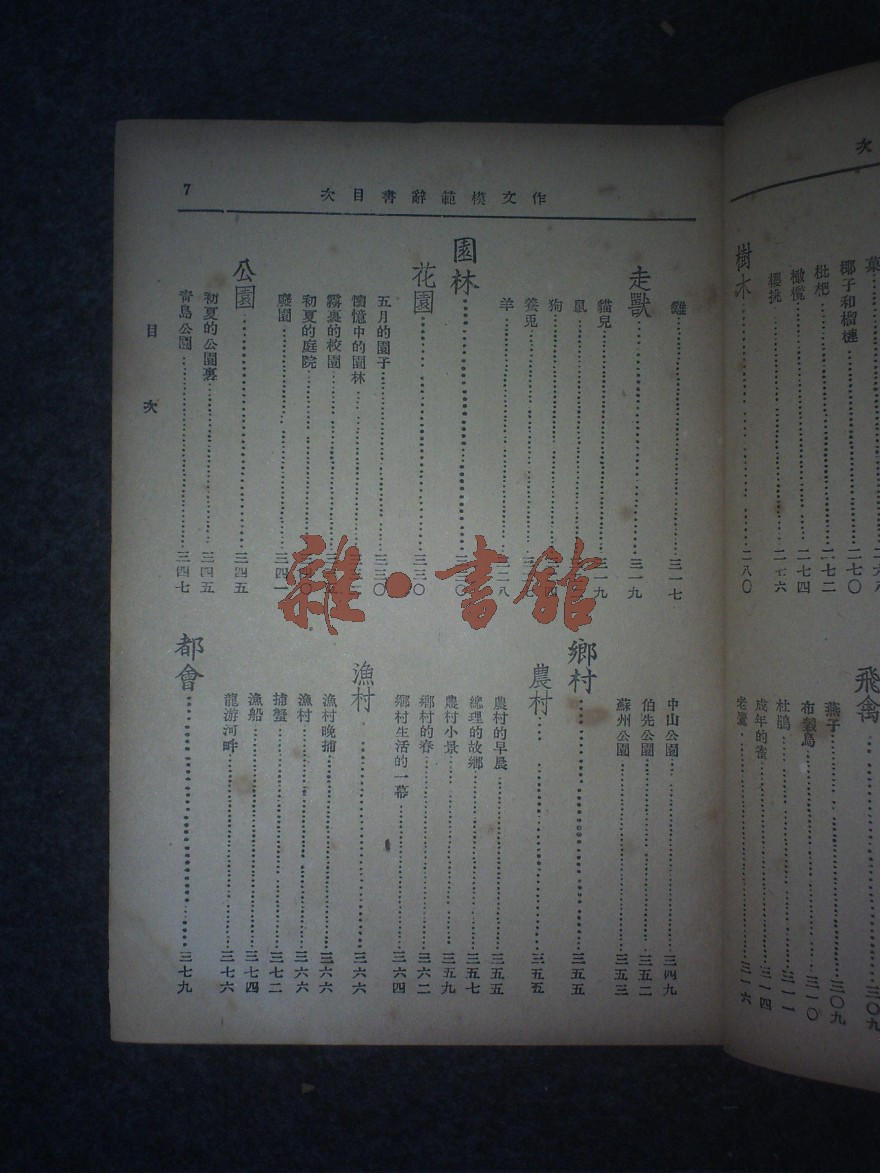 次
菓
椰子和榴槤……二七〇
枇杷……二七二
橄欖……二七四
櫻挑……二七六
樹木……二八〇
飛禽……三〇九
燕子……三〇九
布穀鳥……三一〇
杜鵑……三一一
成年的雀……三一四
老鷹……三一六
作文模範辭書目次
7
雞……三一七
走獸……三一九
貓兒……三一九
鼠
狗
養兎
羊……二八
園林……三三〇
花園……三三〇
五月的園子……三三〇
懷憶中的園林
霧裏的校園
初夏的庭院
廢園……三四一
公園……三四五
初夏的公園裏……三四五
青島公園……三四七
中山公園……三四九
伯先公園……三五二
蘇州公園……三五三
鄉村……三五五
農村……三五五
農村的早晨……三五五
總理的故鄉……三五七
農村小景……三五九
鄉村的春……三六二
鄉村生活的一幕……三六四
漁村……三六六
漁村晚捕……三六六
漁村……三六六
捕蟹……三七二
漁船……三七四
龍游河畔……三七六
都會……三七九
目次
雜·書館